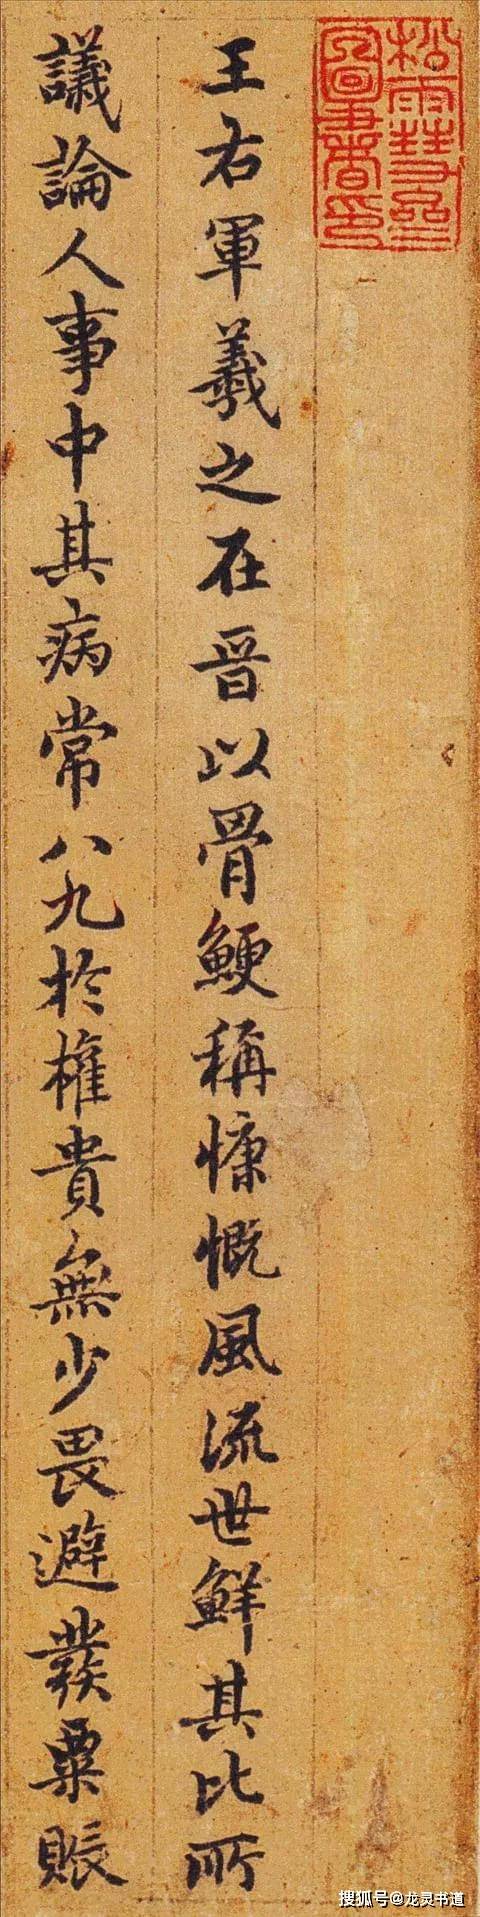 王右軍羲之在晉以骨鯁稱慷慨風流世鮮其比所
議論人事中其病常八九於權貴無少畏避發粟賑
搜狐号@龙灵书道